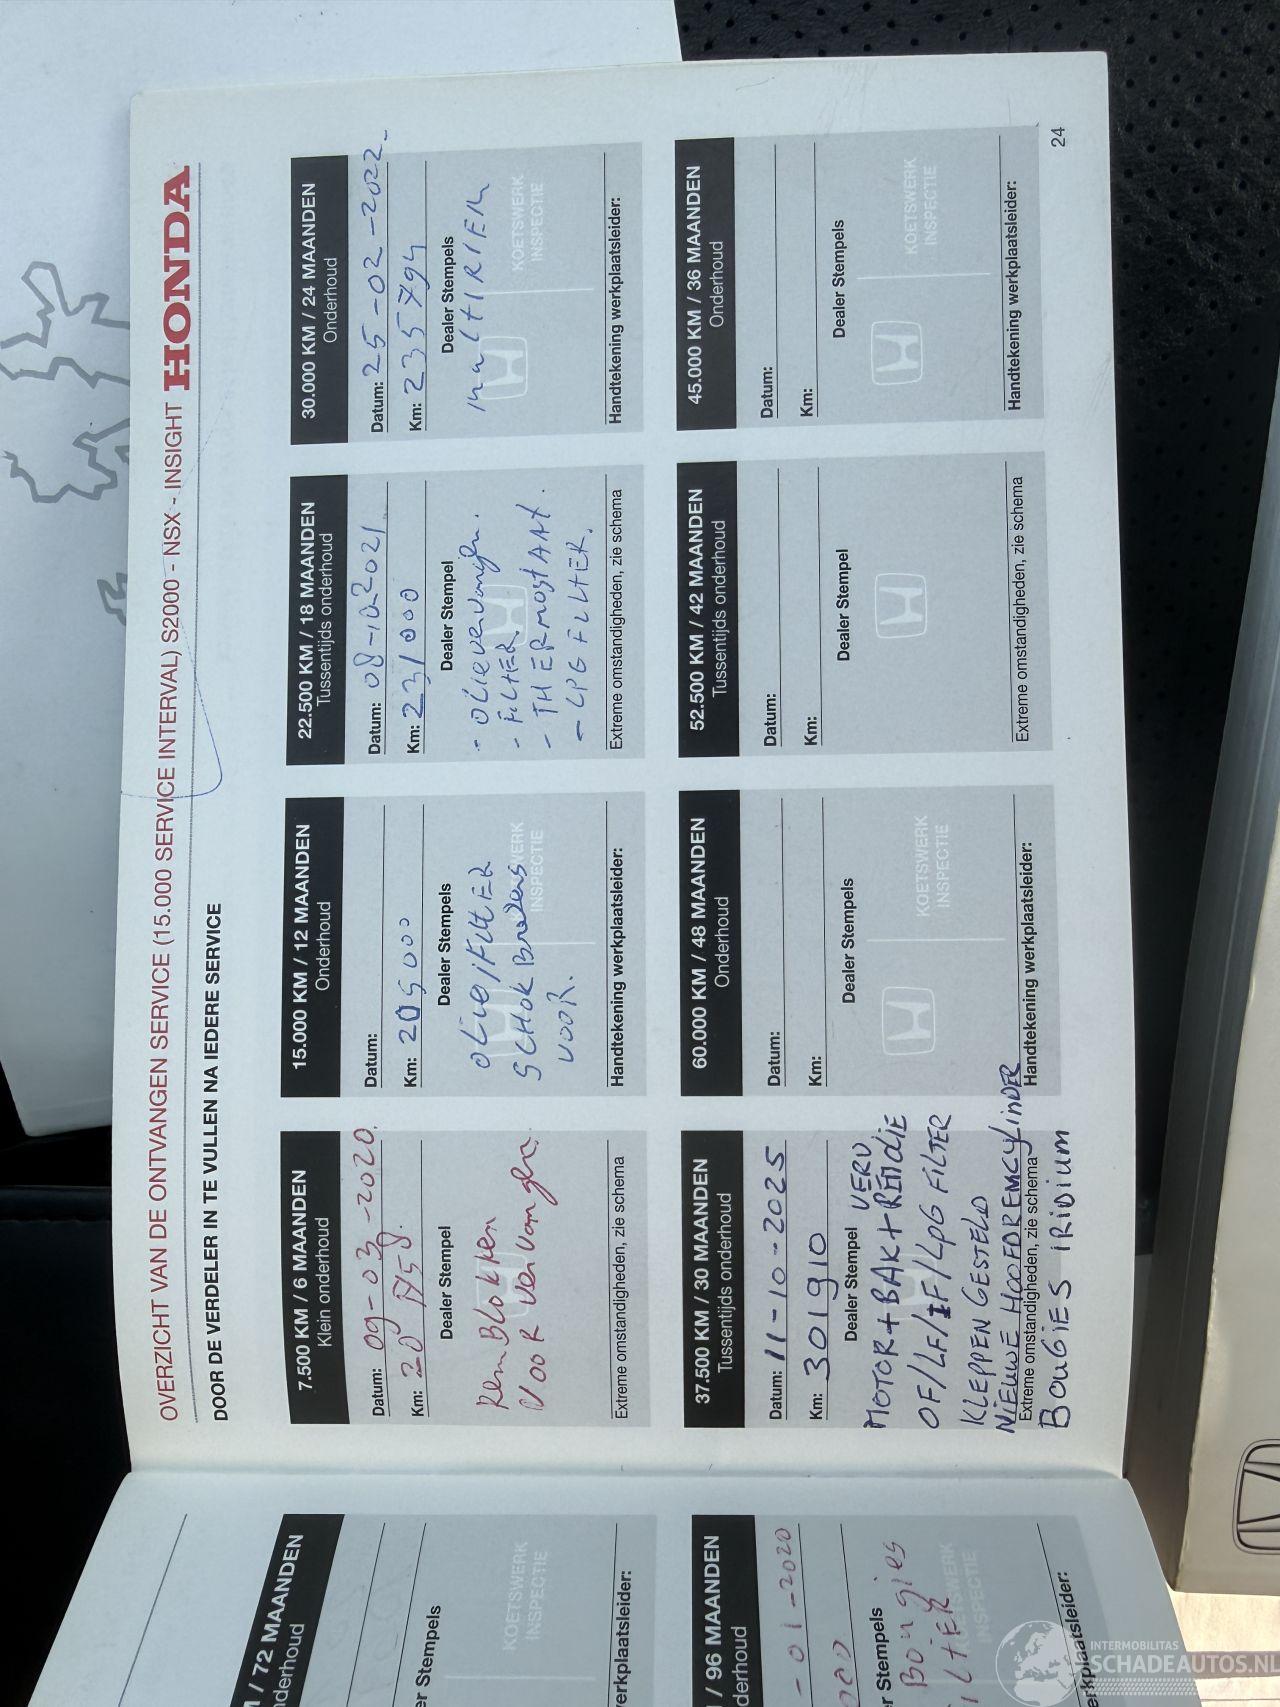 OVERZICHT VAN DE ONTVANGEN SERVICE (15.000 SERVICE INTERVAL) S2000 - NSX - INSIGHT HONDA
DOOR DE VERDELER IN TE VULLEN NA IEDERE SERVICE
7.500 KM / 6 MAANDEN
Klein onderhoud
Datum: 09-03-2020.
Km:
Dealer Stempel
RemBlokken
VooR Vervangen.
Extreme omstandigheden, zie schema
15.000 KM / 12 MAANDEN
Onderhoud
Datum:
Km: 205000
Dealer Stempels
OLie/FILTER
SCHokBrekers
VOOR.
KOETSWERK
INSPECTIE
Handtekening werkplaatsleider:
22.500 KM / 18 MAANDEN
Tussentijds onderhoud
Datum: 08-10-2021
Km: 231000
Dealer Stempel
- OLieVervangen.
- FILTER
- THERMOSTAAT.
- LPG FILTER.
Extreme omstandigheden, zie schema
30.000 KM / 24 MAANDEN
Onderhoud
Datum: 25-02-2022-
Km: 235794
Dealer Stempels
multiRiem
KOETSWERK
INSPECTIE
Handtekening werkplaatsleider:
37.500 KM / 30 MAANDEN
Tussentijds onderhoud
Datum: 11-10-2025
Km: 301910
Dealer Stempel VERV
MOTOR+BAK+REMOLIE
OF/LF/IF/LPG FILTER
KLEPPEN GESTELD
NIEUWE HOOFDREMCYLINDER
Extreme omstandigheden, zie schema
BOUGIES IRIDIUM
60.000 KM / 48 MAANDEN
Onderhoud
Datum:
Km:
Dealer Stempels
KOETSWERK
INSPECTIE
Handtekening werkplaatsleider:
52.500 KM / 42 MAANDEN
Tussentijds onderhoud
Datum:
Km:
Dealer Stempel
Extreme omstandigheden, zie schema
45.000 KM / 36 MAANDEN
Onderhoud
Datum:
Km:
Dealer Stempels
KOETSWERK
INSPECTIE
Handtekening werkplaatsleider:
24
/ 72 MAANDEN
nderhoud
er Stempels
KOETSWERK
INSPECTIE
werkplaatsleider:
/ 96 MAANDEN
derhoud
-01-2020
000
er Stempels
Bougies
ILTER
WERK
erkplaatsleider:
INTERMOBILITAS
SCHADEAUTOS.NL